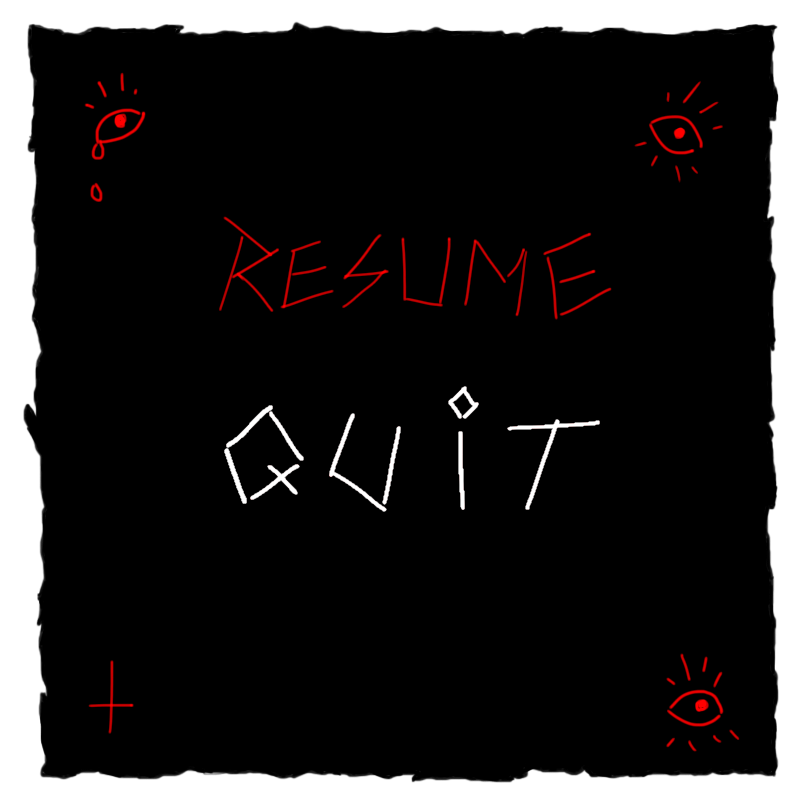 RESUME
QUiT